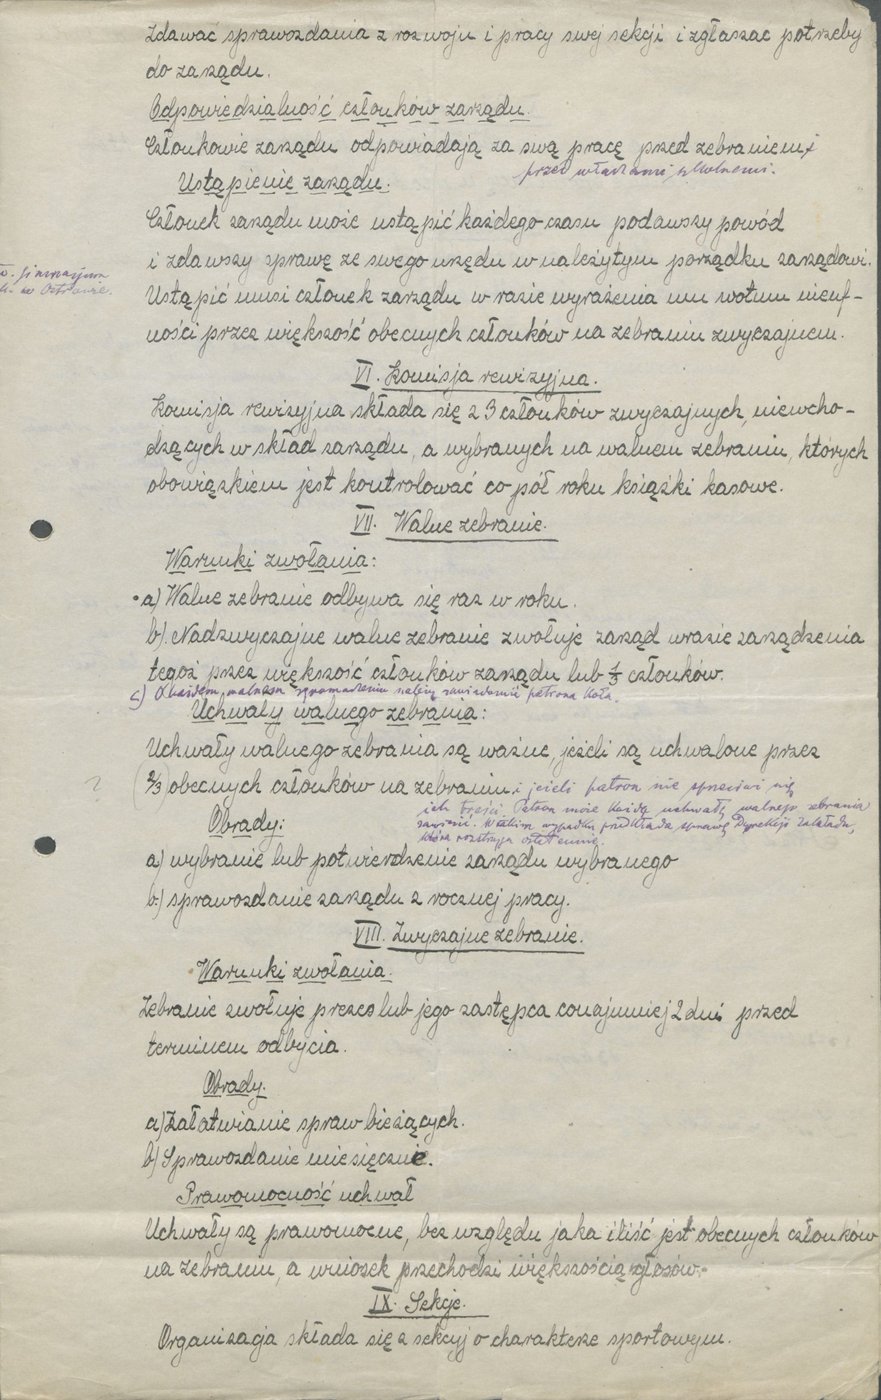 Zdawać sprawozdania z rozwoju i pracy swej sekcji i zgłaszać potrzeby
do zarządu.
Odpowiedzialność członków zarządu.
Członkowie zarządu odpowiadają za swą pracę przed zebraniem i
przed władzami szkolnemi.
Ustąpienie zarządu.
Członek zarządu może ustąpić każdego czasu podawszy powód
i zdawszy sprawę ze swego urzędu w należytym porządku zarządowi.
w Ostrowie.
Ustąpić musi członek zarządu w razie wyrażenia mu wotum nieuf-
ności przez większość obecnych członków na zebraniu zwyczajnem.
VI. Komisja rewizyjna.
Komisja rewizyjna składa się z 3 członków zwyczajnych, niewcho-
dzących w skład zarządu, a wybranych na walnem zebraniu, których
obowiązkiem jest kontrolować co pół roku książki kasowe.
VII. Walne zebranie.
Warunki zwołania:
a) Walne zebranie odbywa się raz w roku.
b) Nadzwyczajne walne zebranie zwołuje zarząd w razie zarządzenia
tegoż przez większość członków zarządu lub 1/3 członków.
c) O każdem walnem zgromadzeniu należy zawiadomić patrona Koła.
Uchwały walnego zebrania:
Uchwały walnego zebrania są ważne, jeżeli są uchwalone przez
? (2/3) obecnych członków na zebraniu i jeżeli patron nie sprzeciwi się
ich treści. Patron może każdą uchwałę walnego zebrania
zawiesić. W takim wypadku przedkłada sprawę Dyrekcji Zakładu,
która rozstrzyga ostatecznie.
Obrady:
a) wybranie lub potwierdzenie zarządu wybranego
b) sprawozdanie zarządu z rocznej pracy.
VIII. Zwyczajne zebranie.
Warunki zwołania.
Zebranie zwołuje prezes lub jego zastępca conajmniej 2 dni przed
terminem odbycia.
Obrady.
a) Załatwianie spraw bieżących.
b) Sprawozdanie miesięcznie.
Prawomocność uchwał
Uchwały są prawomocne, bez względu jaka ilość jest obecnych członków
na zebraniu, a wniosek przechodzi większością głosów.
IX. Sekcje.
Organizacja składa się z sekcyj o charakterze sportowym.